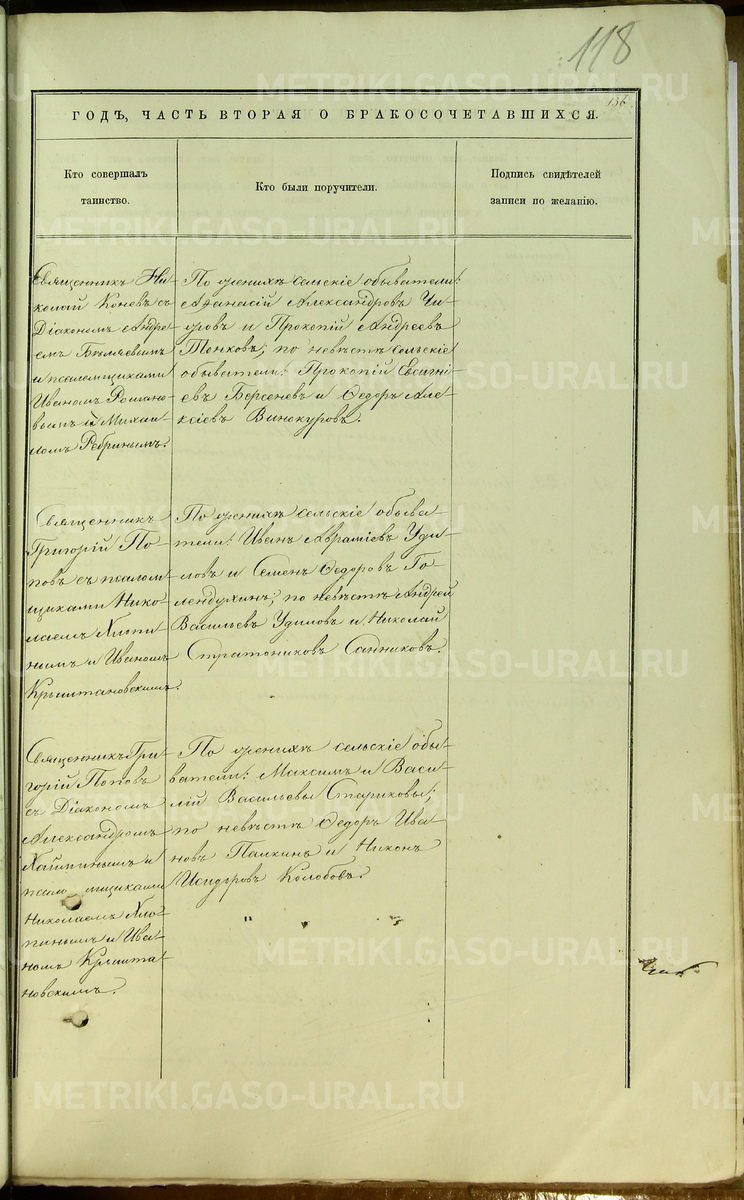 118
136
ГОДЪ, ЧАСТЬ ВТОРАЯ О БРАКОСОЧЕТАВШИХСЯ.
Кто совершалъ
таинство.
Кто были поручители.
Подпись свидѣтелей
записи по желанію.
Священникъ Ни-
колай Коневъ съ
Діакономъ Андре
емъ Бѣляевымъ
и псаломщиками
Иваномъ Романо-
вымъ и Михаи-
ломъ Ребринымъ.
По женихѣ сельскіе обыватели:
Афанасій Александровъ Чи-
ровъ и Прокопій Андреевъ
Тонковъ; по невѣстѣ сельскіе
обыватели: Прокопій Евсигні-
евъ Берсеневъ и Ѳедоръ Але-
ксіевъ Винокуровъ.
Священникъ
Григорій По-
повъ съ псалом-
щиками Нико-
лаемъ Хлопи-
нымъ и Иваномъ
Крыштановскимъ.
По женихѣ сельскіе обыва-
тели: Иванъ Авраміевъ Уди-
ловъ и Семенъ Ѳедоровъ Го-
лендухинъ; по невѣстѣ Андрей
Васильевъ Удиловъ и Николай
Стратониковъ Санниковъ.
Священникъ Гри-
горій Поповъ
съ Діакономъ
Александромъ
и
псаломщиками
Николаемъ Хло-
пинымъ и Ива-
номъ Крышта-
новскимъ.
По женихѣ сельскіе обы-
ватели: Максимъ и Васи-
лій Васильевы Стариковы;
по невѣстѣ Ѳедоръ Ива-
новъ Палкинъ и Никонъ
Исидоровъ Колобовъ.
METRIKI.GASO-URAL.RU
METRIKI.GASO-URAL.RU
METRIKI.GASO-URAL.RU
METRIKI.GASO-URAL.RU
METRIKI.GASO-URAL.RU
METRIKI.GASO-URAL.RU
METRIKI.GASO-URAL.RU
METRIKI.GASO-URAL.RU